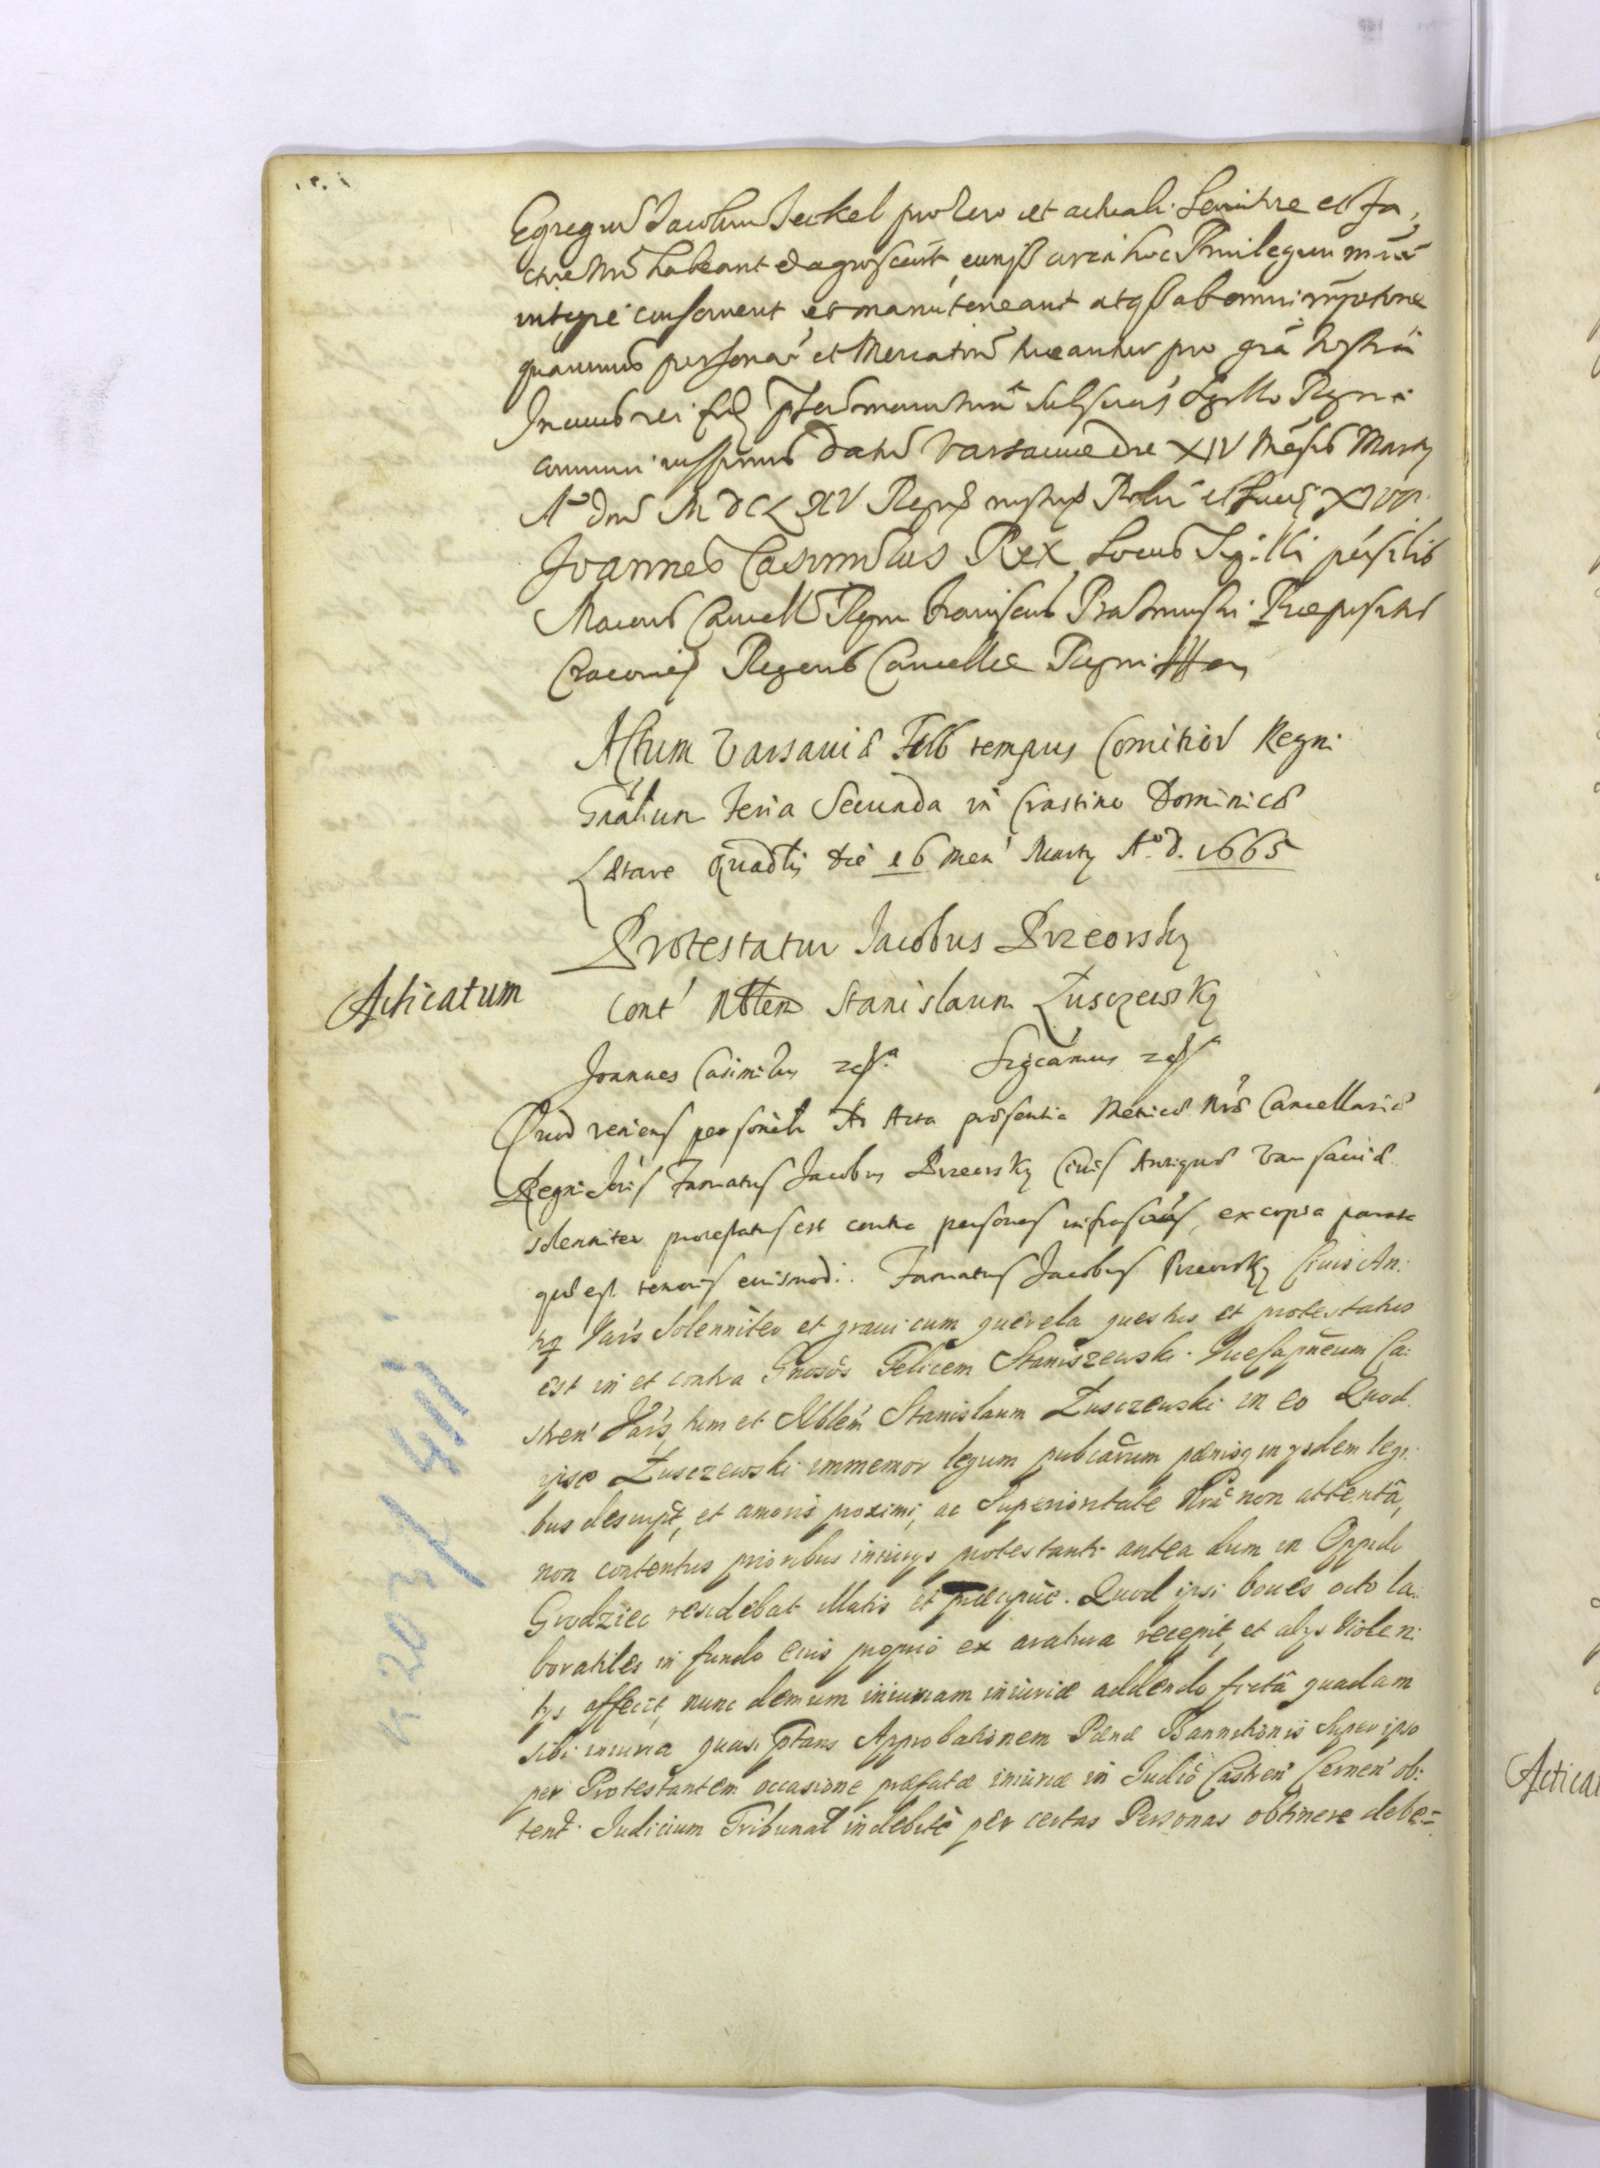 Egregiū Jacobum Jeckel pro vero et actuali Servitore et fa,
ctore Nrō habeant et agnoscant, eumqꝫ circa hoc Privilegium nrūm
integre conservent et manuteneant atqꝫ ab omni impetitōne
quarumvis personarū et Mercatorū tueantur pro grā Nostrā
In cuius rei fidē pntēs manu Nrā Subscriptās Sigillo Regni
communiri iussimus Datū Varsaviæ die XIV Mēsis Marty
Aº Dnī MDCLXV Regnorū nrōrum Poloniæ et Sueciæ XVII
Joannes Casimirus Rex, Locus Sigilli pensilis
Maioris Cancell Regni Franciscus Prasmuski Præpositus
Cracovien̄ Regens Cancellæ Regni Mp
Actum Varsaviæ Sub tempus Comitiorū Regni
Gnāliun Feria Secunda in Crastino Dominicæ
Lætare Quadlis̄ die 16 Men' Marty Aº. D. 1665
Acticatum
Protestatur Jacobus Przeorsky
cont' Nblēm Stanislaum Zusczewsky
Joannes Casimirus etc̄ª Significamus etc̄ª
Quod veniens personalr̄ Ad Acta præsentia Metricæ Nrǣ Cancellariæ
Regni Idēs Famatus Jacobus Przeorsky Civis Antiquæ Varsaviæ
solenniter protestatus est contra personas infrascriptas, ex copia parata
quæ est tenoris eiusmodi. Famatus Jacobus Przeorsky Civis An:
tiq̄ Vars̄ Solenniter et gravi cum querela questus et protestatus
est in et contra Gnōsos Felicem Staniszewski Vicecapnēum Ca:
stren' Vars̄, tum et Nblēm Stanislaum Zusczewski in eo Quod
ipse Zusczewski immemor legum publicarum pænisq̄ in ysdem legi:
bus descript̄, et amoris proximi, ac Superioritate Nrā non attentâ,
non contentus prioribus iniurys protestanti antea dum in Oppido
Grodziec residebat illatis et præcipuè. Quod ipsi boves octo la:
boratiles in fundo eius proprio ex aratura recepit, et alys Violen:
tys affecit, nunc demum iniuriam iniuriæ addendo fictâ quadam
sibi iniuria quasi pt̄ans Approbationem Pænæ Bannitionis Super ipso
per Protestantem occasione præfatæ iniuriæ in Judicō Castren' Cernen' ob:
tent̄. Judicium Tribunal indebitè per certas Personas obtinere debe=
Actica